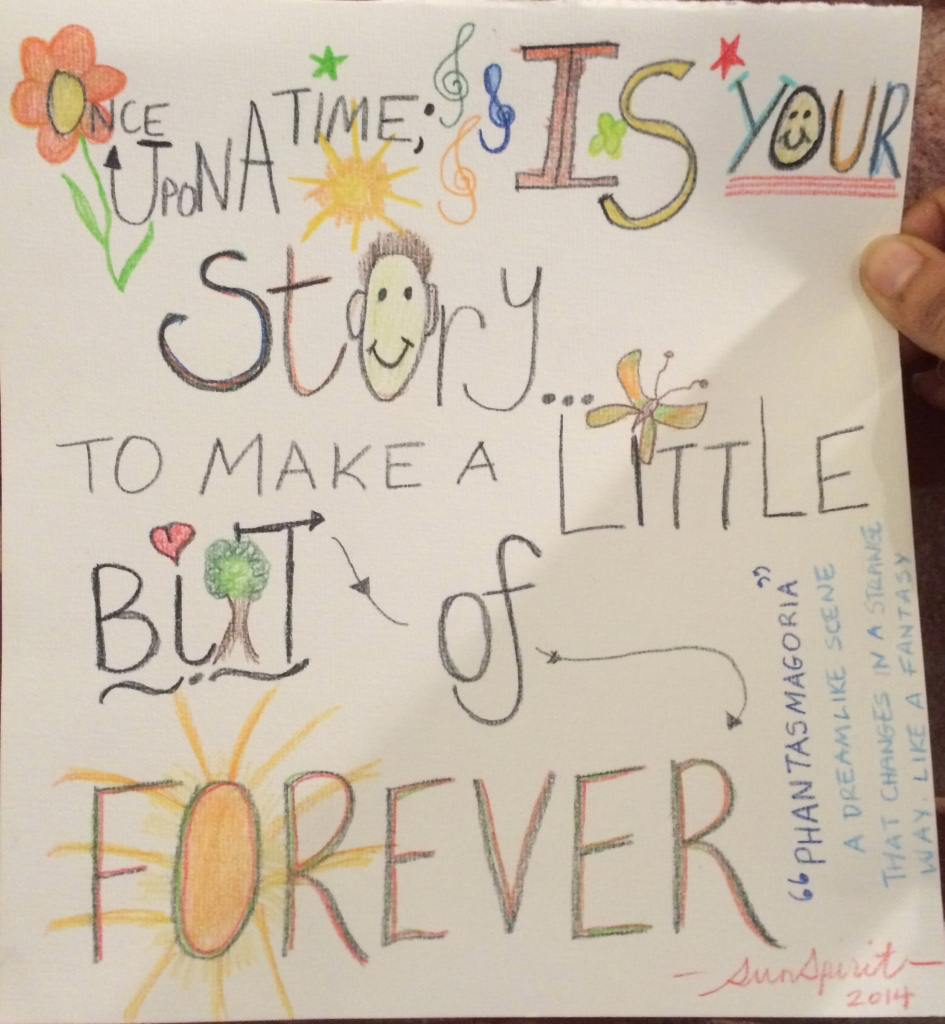 ONCE UPON A TIME; IS YOUR
Story...
TO MAKE A LITTLE
BIT of
FOREVER
"PHANTASMAGORIA"
A DREAMLIKE SCENE
THAT CHANGES IN A STRANGE
WAY, LIKE A FANTASY
- SunSpirit -
2014